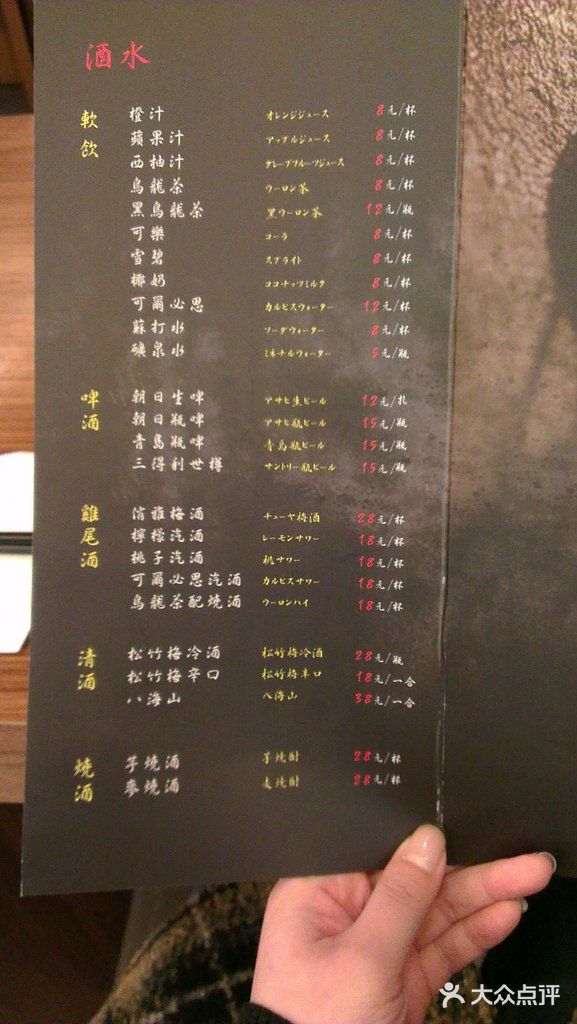 酒水
軟飲
橙汁 オレンジジュース 8元/杯
蘋果汁 アップルジュース 8元/杯
西柚汁 グレープフルーツジュース 8元/杯
烏龍茶 ウーロン茶 8元/杯
黑烏龍茶 黒ウーロン茶 12元/瓶
可樂 コーラ 8元/杯
雪碧 スプライト 8元/杯
椰奶 ココナッツミルク 8元/杯
可爾必思 カルピスウォーター 12元/杯
蘇打水 ソーダウォーター 8元/杯
礦泉水 ミネナルウォーター 5元/瓶
啤酒
朝日生啤 アサヒ生ビール 12元/扎
朝日瓶啤 アサヒ瓶ビール 15元/瓶
青島瓶啤 青島瓶ビール 15元/瓶
三得利世樽 サントリー瓶ビール 15元/瓶
雞尾酒
俏雅梅酒 チューヤ梅酒 28元/杯
檸檬汽酒 レーモンサワー 18元/杯
桃子汽酒 桃サワー 18元/杯
可爾必思汽酒 カルピスサワー 18元/杯
烏龍茶配燒酒 ウーロンハイ 18元/杯
清酒
松竹梅冷酒 松竹梅冷酒 28元/瓶
松竹梅辛口 松竹梅辛口 18元/一合
八海山 八海山 38元/一合
燒酒
芋燒酒 芋焼酎 28元/杯
麥燒酒 麦焼酎 28元/杯
大众点评